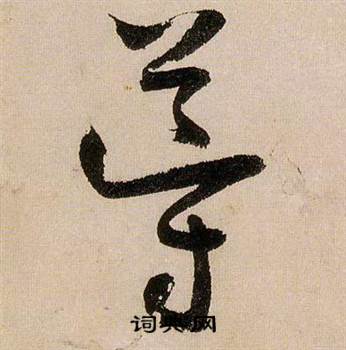 導
词典网